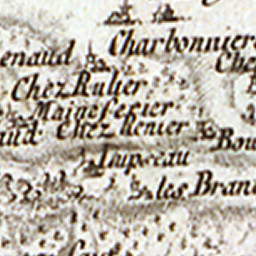 Charbonnier
enaud
Che
Chez Rulier
Maineferier
aud Chez Renier
Bou
les Bran